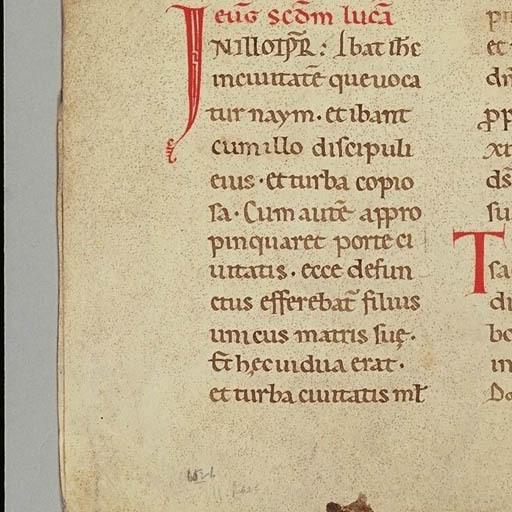 euḡ scd̄m lucā
INILLOTP̄R: Ibat ih̄c
inciuitatē queuoca
tur naym. et ibant
cum illo discipuli
eius. et turba copio
sa. Cum autē appro
pinquaret porte ci
uitatis. ecce defun
ctus efferebat᷑ filius
unicus matris suę.
Et hęc uidua erat.
et turba ciuitatis ml̄t
et
dn̄
pp
xr
ds̄
su
T
sa
di
bo
in
Do